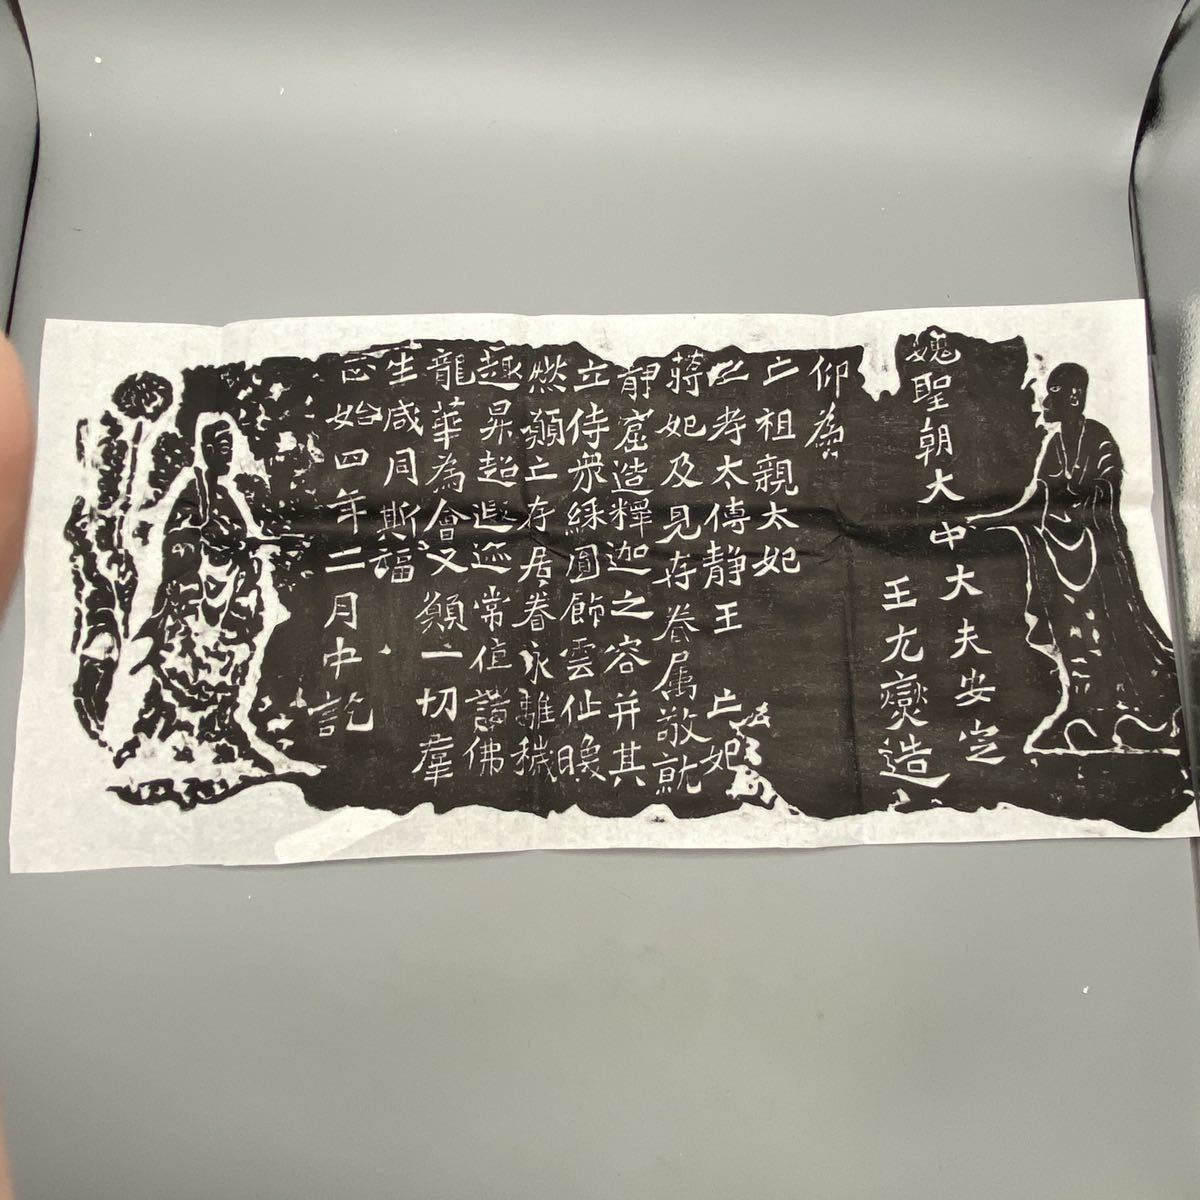 魏聖朝大中大夫安定
王尢燮造
仰為
亡祖親太妃
亡考太傅靜王 亡妣
蔣妃及見存眷属敬就
靜窟造釋迦之容并其
立侍衆綵圓飾雲仙暎
然願亡存居眷永離穢
趣昇超遐迩常值諸佛
龍華為會又願一切羣
生咸同斯福
正始四年二月中訖